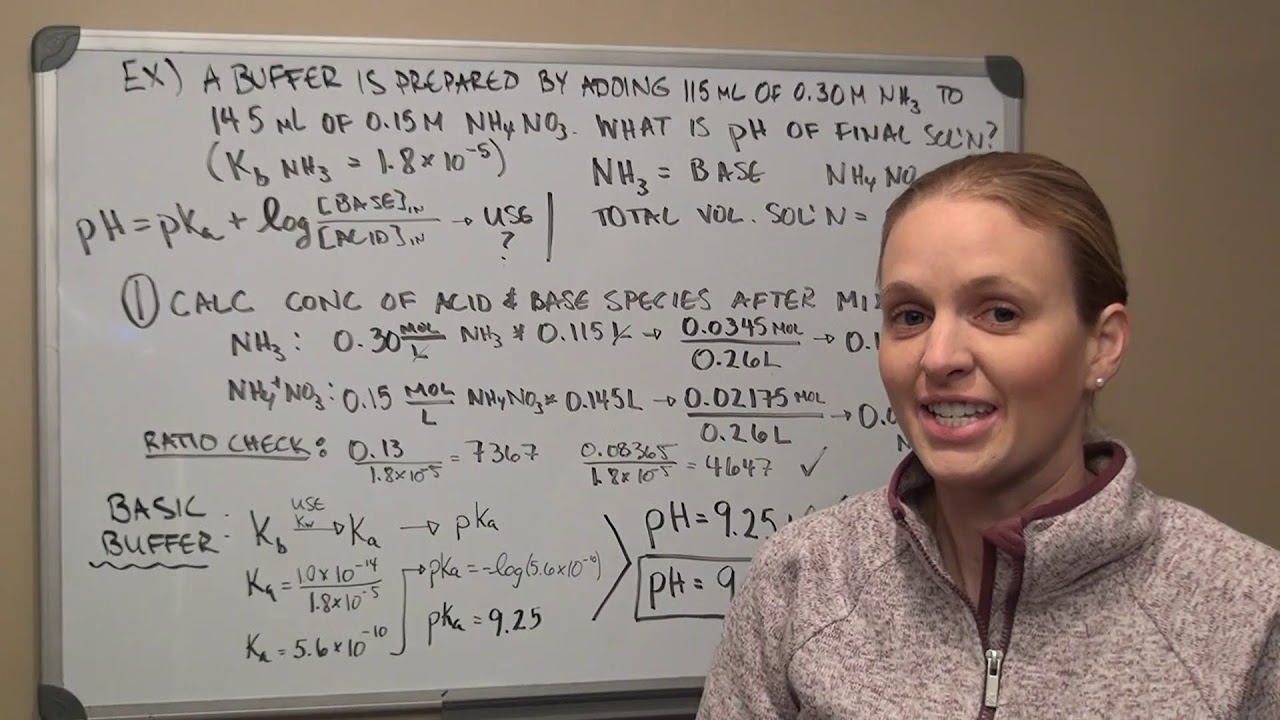 EX) A BUFFER IS PREPARED BY ADDING 115 ML OF 0.30 M NH₃ TO
145 ML OF 0.15 M NH₄NO₃. WHAT IS pH OF FINAL SOL'N?
(K_b NH₃ = 1.8 × 10⁻⁵)
NH₃ = BASE NH₄NO
pH = pKₐ + log [BASE]_IN / [ACID]_IN → USE ?
TOTAL VOL. SOL'N =
① CALC CONC OF ACID & BASE SPECIES AFTER
NH₃: 0.30 MOL/L NH₃ * 0.115 L → 0.0345 MOL / 0.26 L → 0.1
NH₄⁺NO₃: 0.15 MOL/L NH₄NO₃ * 0.145 L → 0.02175 MOL / 0.26 L → 0.0
RATIO CHECK: 0.13 / 1.8×10⁻⁵ = 7367 0.08365 / 1.8×10⁻⁵ = 4647 ✓
BASIC BUFFER: K_b USE K_w → Kₐ → pKₐ
Kₐ = 1.0 × 10⁻¹⁴ / 1.8 × 10⁻⁵
Kₐ = 5.6 × 10⁻¹⁰
pKₐ = -log(5.6 × 10⁻¹⁰)
pKₐ = 9.25
pH = 9.25
pH = 9